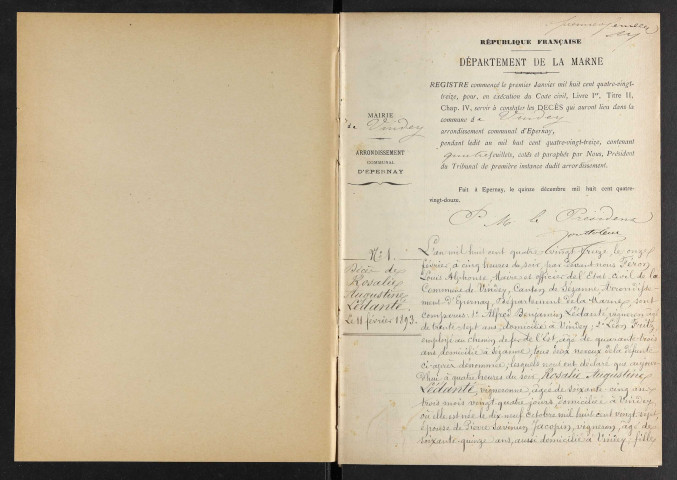 premier feuillet
RÉPUBLIQUE FRANÇAISE
DÉPARTEMENT DE LA MARNE
MAIRIE
de Vindey
ARRONDISSEMENT
COMMUNAL
D'EPERNAY
REGISTRE commencé le premier Janvier mil huit cent quatre-vingt-
treize, pour, en exécution du Code civil, Livre Ier, Titre II,
Chap. IV, servir à constater les DÉCÈS qui auront lieu dans la
commune de Vindey
arrondissement communal d'Epernay,
pendant ledit an mil huit cent quatre-vingt-treize, contenant
quatre feuillets, cotés et paraphés par Nous, Président
du Tribunal de première instance dudit arrondissement.
Fait à Epernay, le quinze décembre mil huit cent quatre-
vingt-douze.
Pr M le Président
N° 1.
Décès de
Rosalie
Augustine
Lédanté
Le 11 février 1893.
L'an mil huit cent quatre vingt treize, le onze
février, à cinq heures du soir, par devant nous Féron
Louis Alphonse, Maire et officier de l'Etat civil de la
Commune de Vindey, Canton de Sézanne, Arrondisse-
ment d'Epernay, Département de la Marne, sont
comparus 1° Alfred Benjamin Lédanté, vigneron, âgé
de trente-sept ans, domicilié à Vindey; 2° Léon
employé au chemin de fer de l'Est, âgé de quarante trois
ans domicilié à Sézanne, tous deux neveux de la défunte
ci-après dénommée; lesquels nous ont déclaré que aujour-
d'hui, à quatre heures du soir Rosalie Augustine
Lédanté, vigneronne, âgée de soixante cinq ans
trois mois vingt-quatre jours, domiciliée à Vindey
où elle est née le dix neuf octobre mil huit cent vingt sept
épouse de Pierre Savinien Jacopin, vigneron, âgé de
soixante quinze ans, aussi domicilié à Vindey; fille